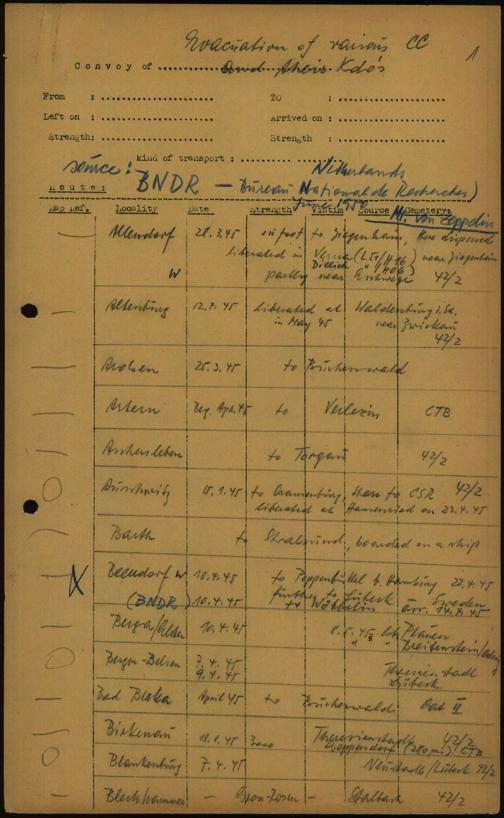 Evacuation of various CC
1
Convoy of and their Kdo's
From : TO :
Left on : Arrived on :
Strength: Strength :
kind of transport :
source: Netherlands
Route: BNDR - Bureau National de Recherches)
June 1950 M. von Zeppelin
Map Ref. Locality Date Strength Victim Source Cemeterys
Allendorf 28.3.45 on foot to Ziegenhain, there dispersed
liberated in near Ziegenhain
W partly near Eschwege 42/2
Altenburg 12.4.45 liberated at Waldenburg i. Sa.
in May 45 near Zwickau
42/2
Arolsen 25.3.45 to Buchenwald
Artern Beg. Apr. 45 to CTB
Aschersleben to Torgau 42/2
Auschwitz 18.1.45 to then to CSR 42/2
liberated at on 23.4.45
Barth to Stralsund, boarded on a ship
X Beendorf W 10.4.45 to Poppenbüttel b. Hamburg 22.4.45
further to Lübeck Sweden
(BNDR) 10.4.45 to Wöbbelin arr. 14.4.45
Berga/Elster 10.4.45 8.5.45 Plauen
Breitenstein
Bergen-Belsen 7.4.45 Theresienstadt
9.4.45 Lübeck
Bad Berka April 45 to Buchenwald Oat II
Birkenau 18.1.45 Theresienstadt 42/2
CTB
Blankenburg 7.4.45 Neustadt/Lübeck 42/2
Blechhammer - Gross-Rosen - 42/2